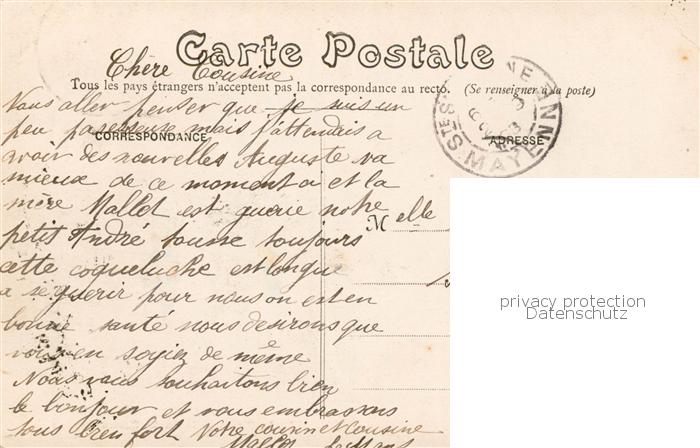 Carte Postale
Chère Cousine
Tous les pays étrangers n'acceptent pas la correspondance au recto. (Se renseigner à la poste)
CORRESPONDANCE
ADRESSE
Vous aller penser que je suis un
peu paresseuse mais j'attendais a
avoir des nouvelles Auguste va
mieux de ce moment a et la
mère Mallot est guerie notre
petit André tousse toujours
cette coqueluche est longue
a se guerir pour nous on est en
bonne santé nous desirons que
vous en soyiez de même
Nous vous souhaitons bien
le bonjour et vous embrassons
tous bien fort Notre cousin et cousine
Mallot
Melle
MAYENNE
privacy protection
Datenschutz